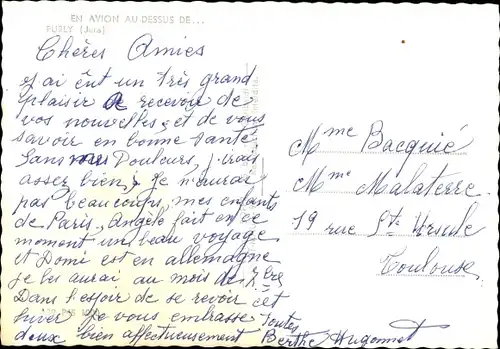 EN AVION AU-DESSUS DE...
PURLY (Jura)
Chères Amies
J'ai eût un très grand
plaisir de recevoir de
vos nouvelles, et de vous
savoir en bonne santé
sans mes Douleurs, j'irais
assez bien, Je n'aurai
pas beaucoup, mes enfants
de Paris, Angèle fait en ce
moment un beau voyage
et Domi est en allemagne
je les aurai au mois de 7bre
Dans l'espoir de se revoir cet
hiver Je vous embrasse toutes
deux bien affectueusement
Berthe Hugonnet
Mme Bacquié
Mme Malaterre
19 rue Ste Ursule
Toulouse